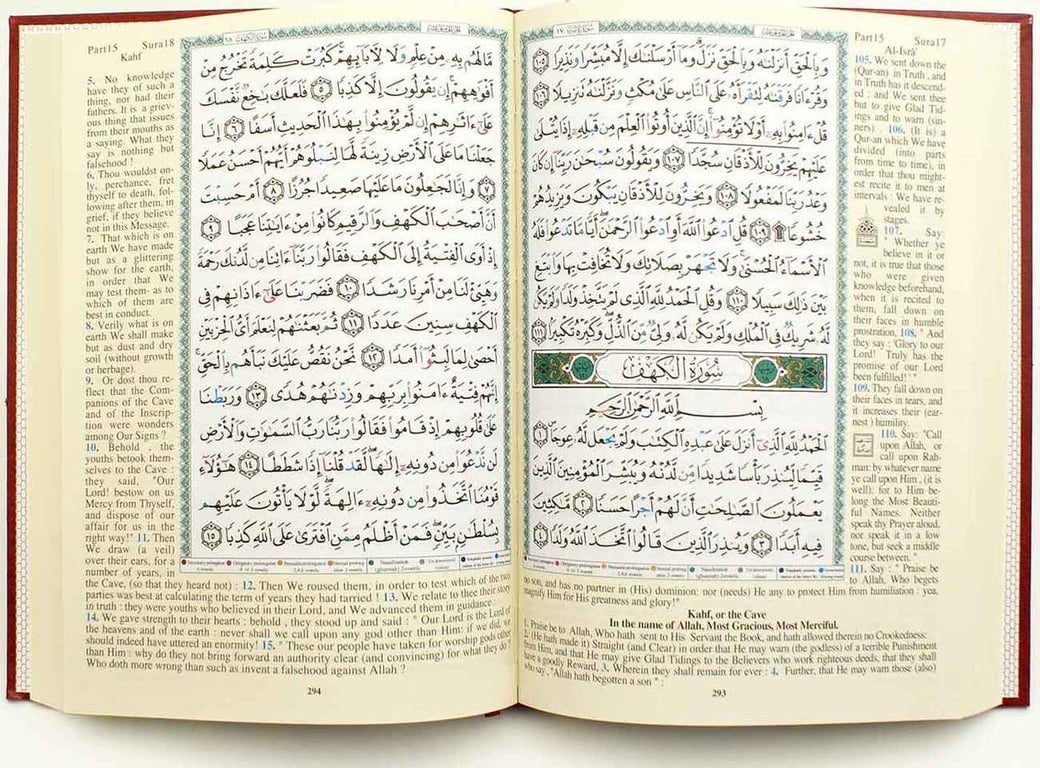 Part15 Sura17
Al-Isrâ'
وَبِالْحَقِّ أَنزَلْنَاهُ وَبِالْحَقِّ نَزَلَ وَمَا أَرْسَلْنَاكَ إِلَّا مُبَشِّرًا وَنَذِيرًا ١٠٥
وَقُرْءَانًا فَرَقْنَاهُ لِتَقْرَأَهُ عَلَى النَّاسِ عَلَى مُكْثٍ وَنَزَّلْنَاهُ تَنزِيلًا ١٠٦
قُلْ ءَامِنُوا بِهِ أَوْ لَا تُؤْمِنُوا إِنَّ الَّذِينَ أُوتُوا الْعِلْمَ مِن قَبْلِهِ إِذَا يُتْلَى
عَلَيْهِمْ يَخِرُّونَ لِلْأَذْقَانِ سُجَّدًا ١٠٧ وَيَقُولُونَ سُبْحَانَ رَبِّنَا إِن كَانَ
وَعْدُ رَبِّنَا لَمَفْعُولًا ١٠٨ وَيَخِرُّونَ لِلْأَذْقَانِ يَبْكُونَ وَيَزِيدُهُمْ
خُشُوعًا ۩ ١٠٩ قُلِ ادْعُوا اللَّهَ أَوِ ادْعُوا الرَّحْمَنَ أَيًّا مَّا تَدْعُوا فَلَهُ
الْأَسْمَاءُ الْحُسْنَى وَلَا تَجْهَرْ بِصَلَاتِكَ وَلَا تُخَافِتْ بِهَا وَابْتَغِ
بَيْنَ ذَلِكَ سَبِيلًا ١١٠ وَقُلِ الْحَمْدُ لِلَّهِ الَّذِي لَمْ يَتَّخِذْ وَلَدًا وَلَمْ يَكُن
لَّهُ شَرِيكٌ فِي الْمُلْكِ وَلَمْ يَكُن لَّهُ وَلِيٌّ مِّنَ الذُّلِّ وَكَبِّرْهُ تَكْبِيرًا ١١١
سُورَةُ الْكَهْفِ
بِسْمِ اللَّهِ الرَّحْمَنِ الرَّحِيمِ
الْحَمْدُ لِلَّهِ الَّذِي أَنزَلَ عَلَى عَبْدِهِ الْكِتَابَ وَلَمْ يَجْعَل لَّهُ عِوَجًا ١
قَيِّمًا لِّيُنذِرَ بَأْسًا شَدِيدًا مِّن لَّدُنْهُ وَيُبَشِّرَ الْمُؤْمِنِينَ الَّذِينَ
يَعْمَلُونَ الصَّالِحَاتِ أَنَّ لَهُمْ أَجْرًا حَسَنًا ٢ مَّاكِثِينَ
فِيهِ أَبَدًا ٣ وَيُنذِرَ الَّذِينَ قَالُوا اتَّخَذَ اللَّهُ وَلَدًا ٤
105. We sent down the
(Qur-an) in Truth, and
in Truth has it descend-
ed : and We sent thee
but to give Glad Tid-
ings and to warn (sin-
ners) . 106. (It is) a
Qur-an which We have
divided (into parts
from time to time), in
order that thou might-
est recite it to men at
intervals : We have re-
vealed it by
stages.
107. Say:
" Whether ye
believe in it or
not, it is true that those
who were given
knowledge beforehand,
when it is recited to
them, fall down on
their faces in humble
prostration, 108. " And
they say : 'Glory to our
Lord! Truly has the
promise of our Lord
been fulfilled!' "
109. They fall down on
their faces in tears, and
it increases their (ear-
nest ) humility.
110. Say: "Call
upon Allah, or
call upon Rah-
man: by whatever name
ye call upon Him , (it is
well): for to Him be-
long the Most Beauti-
ful Names. Neither
speak thy Prayer aloud,
nor speak it in a low
tone, but seek a middle
course between. "
111. Say : " Praise be
to Allah, Who begets
no son, and has no partner in (His) dominion: nor (needs) He any to protect Him from humiliation : yea,
magnify Him for His greatness and glory!"
Kahf, or the Cave
In the name of Allah, Most Gracious, Most Merciful.
1. Praise be to Allah, Who hath sent to His Servant the Book, and hath allowed therein no Crookedness:
2. (He hath made it) Straight (and Clear) in order that He may warn (the godless) of a terrible Punishment
from Him, and that He may give Glad Tidings to the Believers who work righteous deeds, that they shall
have a goodly Reward, 3. Wherein they shall remain for ever : 4. Further, that He may warn those (also)
who say, "Allah hath begotten a son" :
293
Part15 Sura18
Kahf
مَّا لَهُم بِهِ مِنْ عِلْمٍ وَلَا لِآبَائِهِمْ كَبُرَتْ كَلِمَةً تَخْرُجُ مِنْ
أَفْوَاهِهِمْ إِن يَقُولُونَ إِلَّا كَذِبًا ٥ فَلَعَلَّكَ بَاخِعٌ نَّفْسَكَ
عَلَى ءَاثَارِهِمْ إِن لَّمْ يُؤْمِنُوا بِهَذَا الْحَدِيثِ أَسَفًا ٦ إِنَّا
جَعَلْنَا مَا عَلَى الْأَرْضِ زِينَةً لَّهَا لِنَبْلُوَهُمْ أَيُّهُمْ أَحْسَنُ عَمَلًا
٧ وَإِنَّا لَجَاعِلُونَ مَا عَلَيْهَا صَعِيدًا جُرُزًا ٨ أَمْ حَسِبْتَ
أَنَّ أَصْحَابَ الْكَهْفِ وَالرَّقِيمِ كَانُوا مِنْ ءَايَاتِنَا عَجَبًا ٩
إِذْ أَوَى الْفِتْيَةُ إِلَى الْكَهْفِ فَقَالُوا رَبَّنَا ءَاتِنَا مِن لَّدُنكَ رَحْمَةً
وَهَيِّئْ لَنَا مِنْ أَمْرِنَا رَشَدًا ١٠ فَضَرَبْنَا عَلَى ءَاذَانِهِمْ فِي
الْكَهْفِ سِنِينَ عَدَدًا ١١ ثُمَّ بَعَثْنَاهُمْ لِنَعْلَمَ أَيُّ الْحِزْبَيْنِ
أَحْصَى لِمَا لَبِثُوا أَمَدًا ١٢ نَّحْنُ نَقُصُّ عَلَيْكَ نَبَأَهُم بِالْحَقِّ
إِنَّهُمْ فِتْيَةٌ ءَامَنُوا بِرَبِّهِمْ وَزِدْنَاهُمْ هُدًى ١٣ وَرَبَطْنَا
عَلَى قُلُوبِهِمْ إِذْ قَامُوا فَقَالُوا رَبُّنَا رَبُّ السَّمَاوَاتِ وَالْأَرْضِ
لَن نَّدْعُوَا مِن دُونِهِ إِلَهًا لَّقَدْ قُلْنَا إِذًا شَطَطًا ١٤ هَؤُلَاءِ
قَوْمُنَا اتَّخَذُوا مِن دُونِهِ ءَالِهَةً لَّوْلَا يَأْتُونَ عَلَيْهِم
بِسُلْطَانٍ بَيِّنٍ فَمَنْ أَظْلَمُ مِمَّنِ افْتَرَى عَلَى اللَّهِ كَذِبًا ١٥
5. No knowledge
have they of such a
thing, nor had their
fathers. It is a griev-
ous thing that issues
from their mouths as
a saying. What they
say is nothing but
falsehood !
6. Thou wouldst on-
ly, perchance, fret
thyself to death, fol-
lowing after them, in
grief, if they believe
not in this Message.
7. That which is on
earth We have made
but as a glittering
show for the earth,
in order that We
may test them- as to
which of them are
best in conduct.
8. Verily what is on
earth We shall make
but as dust and dry
soil (without growth
or herbage).
9. Or dost thou re-
flect that the Com-
panions of the Cave
and of the Inscrip-
tion were wonders
among Our Signs ?
10. Behold , the
youths betook them-
selves to the Cave :
they said, "Our
Lord! bestow on us
Mercy from Thyself,
and dispose of our
affair for us in the
right way!" 11. Then
We draw (a veil)
over their ears, for a
number of years, in
the Cave, (so that they heard not) : 12. Then We roused them, in order to test which of the two
parties was best at calculating the term of years they had tarried ! 13. We relate to thee their story
in truth : they were youths who believed in their Lord, and We advanced them in guidance.
14. We gave strength to their hearts : behold , they stood up and said : " Our Lord is the Lord of
the heavens and of the earth : never shall we call upon any god other than Him: if we did, we
should indeed have uttered an enormity! 15. " These our people have taken for worship gods other
than Him : why do they not bring forward an authority clear (and convincing) for what they do?
Who doth more wrong than such as invent a falsehood against Allah ?
294